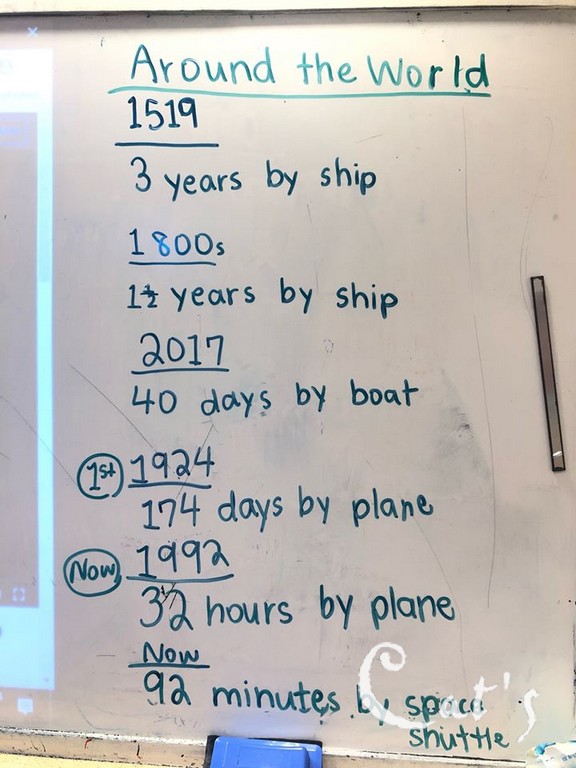 Around the World
1519
3 years by ship
1800s
1½ years by ship
2017
40 days by boat
1st 1924
174 days by plane
Now 1992
32 hours by plane
Now
92 minutes by space
shuttle
Cat's